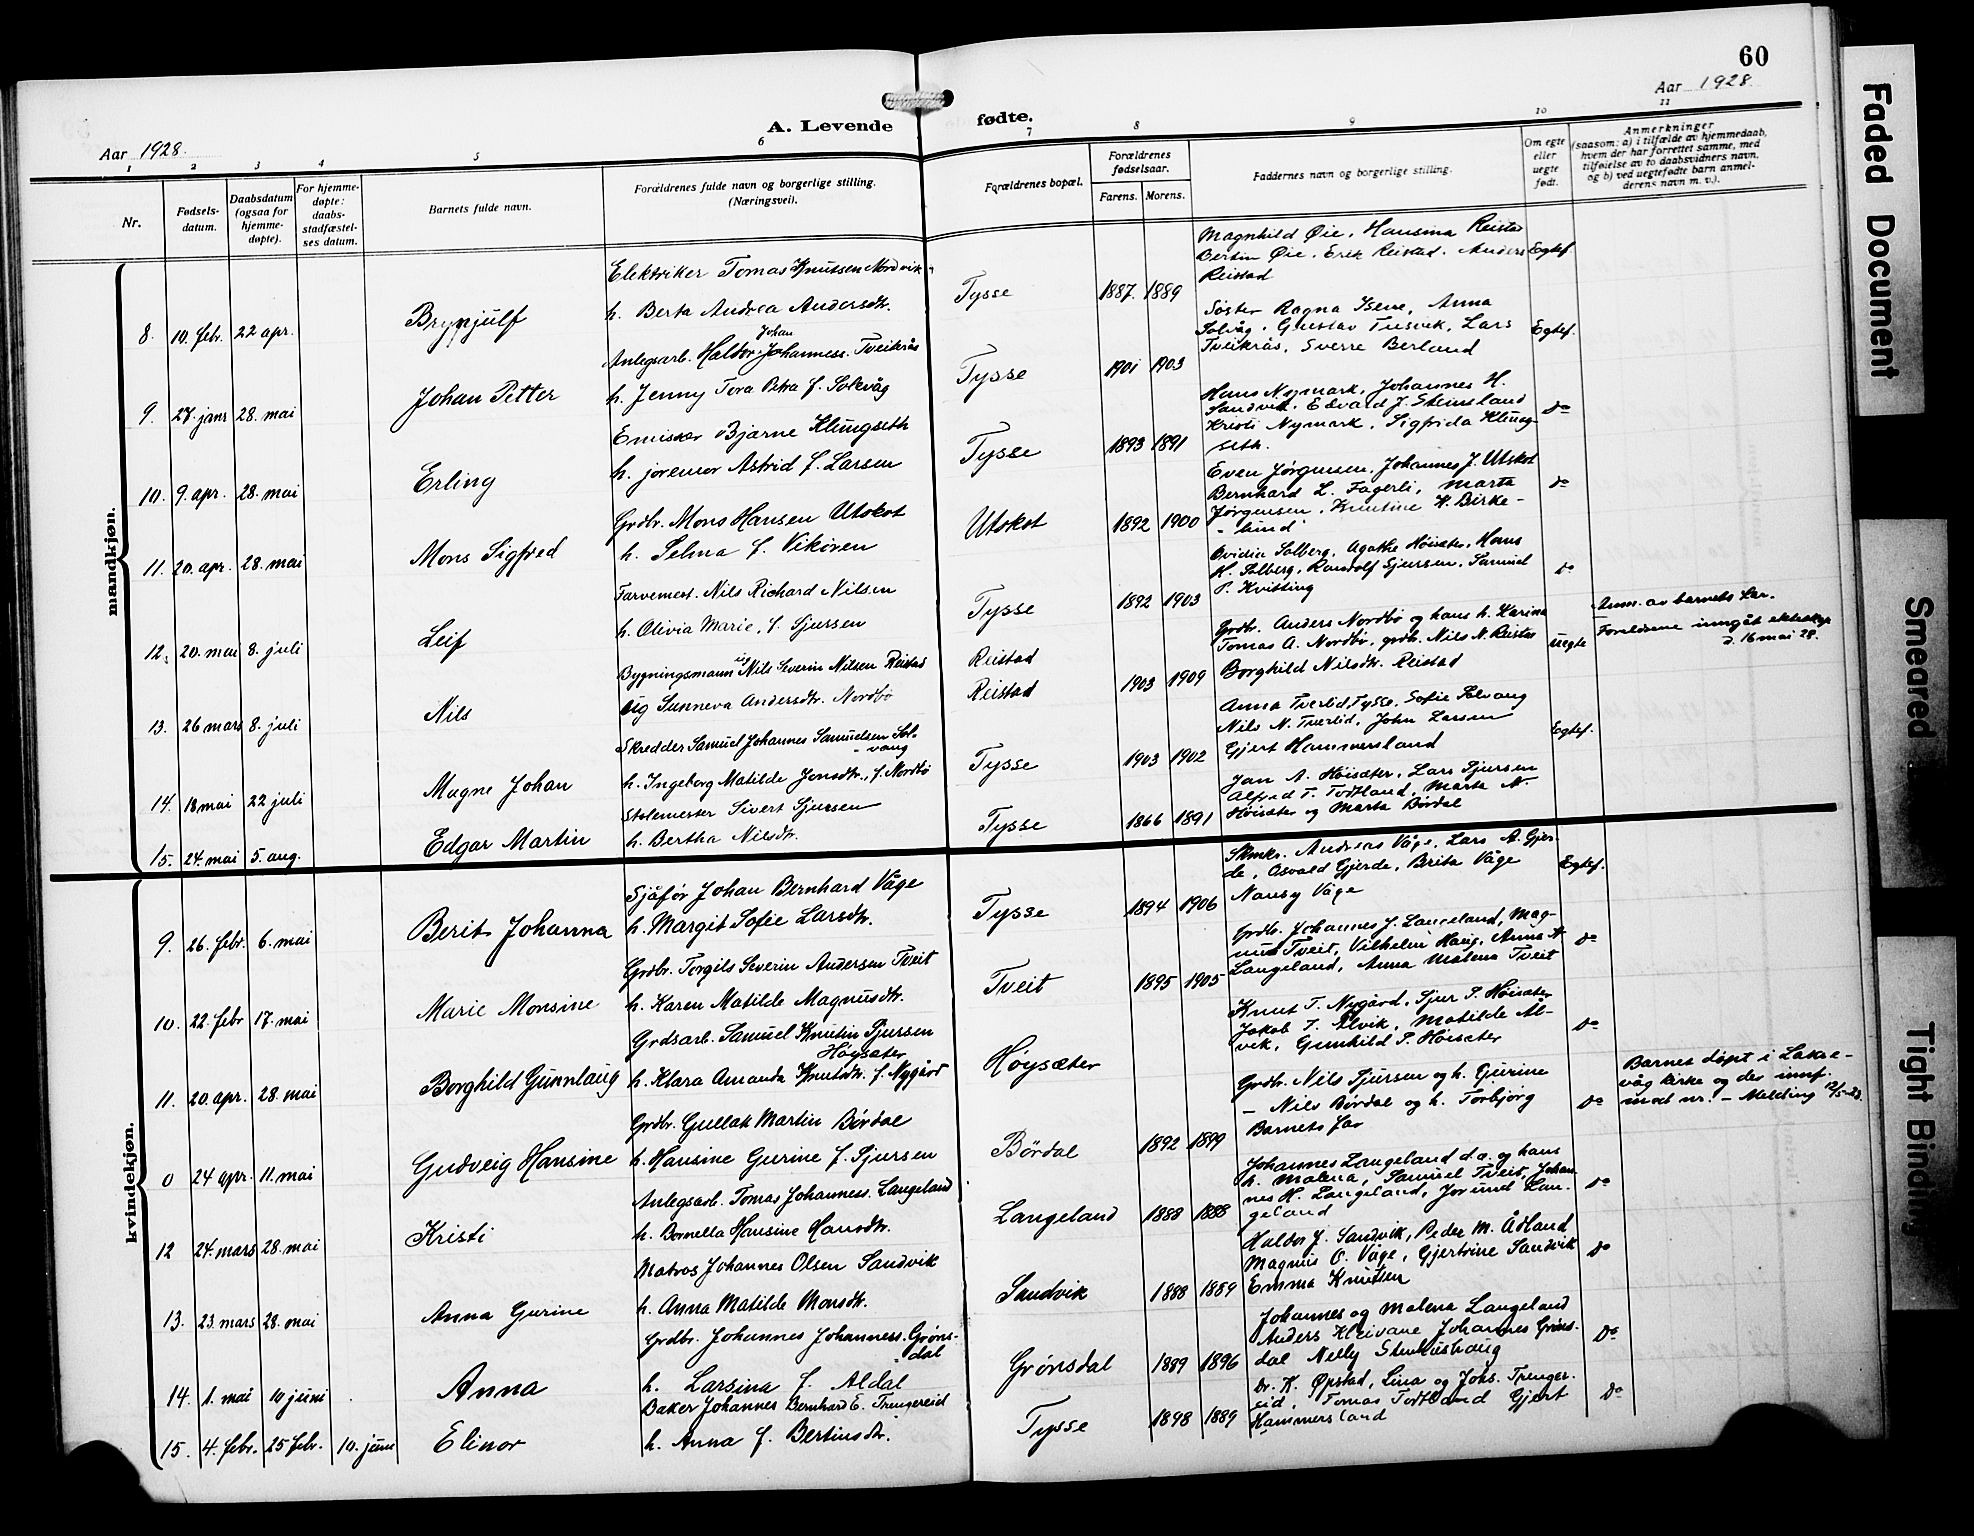 60
Aar 1928.
Aar 1928.
A. Levende fødte.
1 2 3 4 5 6 7 8 9 10 11
Nr.
Fødsels-
datum.
Daabsdatum
(ogsaa for
hjemme-
døpte).
For hjemme-
døpte:
daabs-
stadfæstel-
ses datum.
Barnets fulde navn.
Forældrenes fulde navn og borgerlige stilling.
(Næringsvei).
Forældrenes bopæl.
Forældrenes
fødselsaar.
Farens. Morens.
Faddernes navn og borgerlige stilling.
Om egte
eller
uegte
født.
Anmerkninger
(saasom: a) i tilfælde av hjemmedaab,
hvem der har forrettet samme, med
tilføielse av to daabsvidners navn,
og b) ved uegtefødte barn anmel-
derens navn m. v.).
mandkjøn.
8. 10. febr. 22 apr. Brynjulf
Elektriker Tomas Knutsen Nordvik
h. Berta Andrea Andersdtr.
Tysse 1887. 1889
Magnhild Øie, Hansina Reistad
Bertin Øie, Erik Reistad, Anders
Reistad
Egtef.
9. 27. janr 28. mai Johan Petter
Johan
Anlegsarb. Haldor Johanness. Tveikrås
h. Jenny Tora Petra f. Solvåg
Tysse 1901 1903
Søster Ragna Isene, Anna
Solvåg, Gustav Tresvik, Lars
Tveikrås, Sverre Berland
Egtef.
10. 9. apr. 28. mai Erling
Emissær Bjarne Klungseth
h. jormor Astrid f. Larsen
Tysse 1893 1891
Hans Nymark, Johannes H.
Sandvik, Edvard J. Steinsland
Kristi Nymark, Sigfrida Klung-
seth.
do
11. 20. apr. 28. mai Mons Sigfred
Grdbr. Mons Hansen Utskot
h. Selma f. Vikøren
Utskot 1892 1900
Even Jørgensen, Johannes J. Utskot
Bernhard L. Fagerli, Marta
Jørgensen, Knutine K. Birke-
- lund
do
12. 20. mai 8. juli Leif
Farvemest. Nils Richard Nilsen
h. Olivia Marie, f. Sjursen
Tysse 1892 1903
Ovidia Solberg, Agathe Høisæter, Hans
K. Solberg, Randolf Sjursen, Samuel
P. Kvitting
do
13. 26 mars 8. juli Nils
Bygningsmann Nils Severin Nilsen Reistad
ug Sunneva Andersdtr. Nordbø
Reistad
Reistad 1903 1909
Grdbr. Anders Nordbø og hans h. Karina
Tomas A. Nordbø, grdb. Nils N. Reistad
Borghild Nilsdtr. Reistad
uegte
Anm. av barnets far.
Foreldrene inngåt ekteskap
d. 16 mai 28.
14. 18 mai 22 juli Magne Johan
Skredder Samuel Johannes Samuelsen Sol-
vang
h. Ingeborg Matilde Jonsdtr., f. Nordbø
Tysse 1903 1902
Anna Tverlid, Tysse, Sofie Solvang
Nils N. Tverlid, John Larsen
Gjert Hammersland
Egtef.
15. 24. mai 5. aug. Edgar Martin
Stolemester Sivert Sjursen
h. Bertha Nilsdtr.
Tysse 1866 1891
Jan A. Høisæter, Lars Sjursen
Alfred T. Todtland, Marta N.
Høisæter og Marta Børdal
kvindekjøn.
9. 26. febr. 6. mai Berit Johanna
Sjåfør Johan Bernhard Våge
h. Margit Sofie Larsdtr.
Tysse 1894 1906
Skmkr. Andreas Våge, Lars A. Gjer-
de, Osvald Gjerde, Brita Våge
Nansy Våge
Egtef.
10. 22. febr 17. mai Marie Monsine
Grdbr. Torgils Severin Andersen Tveit
h. Karen Matilde Magnusdtr.
Tveit 1895 1905
Grdb. Johannes J. Langeland, Mag-
nus Tveit, Vilhelm Haug, Anna A
Langeland, Anna Malena Tveit
do
11. 20. apr. 28. mai Borghild Gunnlaug
Grdsarb. Samuel Knutin Sjursen
Høysæter
h. Klara Amanda Knutsdtr. f. Nygård
Høysæter
Knut T. Nygård, Sjur S. Høisæter
Jakob T. Alvik, Matilde Al-
vik, Gunhild S. Høisæter
do
0 24 apr. 11. mai Gudveig Hansine
Grdbr. Gullak Martin Børdal
h. Hansine Gurine f. Sjursen
Børdal 1892 1899
Grdb. Nils Sjursen og h. Gurine
– Nils Børdal og h. Torbjørg
Barnets far
do
Barnet døpt i Lakse-
våg kirke og der innf.
med nr. – Melding 12/5-28.
12 24. mars 28. mai Kristi
Anlegsarb. Tomas Johanness. Langeland
h. Bornella Hansine Hansdtr.
Langeland 1888 1888
Johannes Langeland d.e. og hans
h. Malena, Samuel Tveit, Johan-
nes H. Langeland, Jorund Lan-
geland
do
13. 23. mars 28. mai Anna Gurine
Matros Johannes Olsen Sandvik
h. Anna Matilde Monsdtr.
Sandvik 1888 1889
Haldor J. Sandvik, Peder M. Ådland
Magnus O. Våge, Gjertrine Sandvik
Emma Knutsen
do
14. 1. mai 10 juni Anna
Grdbr. Johannes Johanness. Grøns-
dal
h. Larsina f. Aldal
Grønsdal 1889 1896
Johannes og Malena Langeland
Anders Kleivane Johannes Grøns-
dal Nelly Stenhushaug
do
15. 4. febr. 25 febr. 10. juni Elinor
Baker Johannes Bernhard E. Trengereid
h. Anna f. Bertinsdtr.
Tysse 1898 1889
Dr. K. Opstad, Lina og Johs. Trenger-
eid, Tomas Todtland Gjert
Hammersland
do
Faded Document
Smeared
Tight Binding